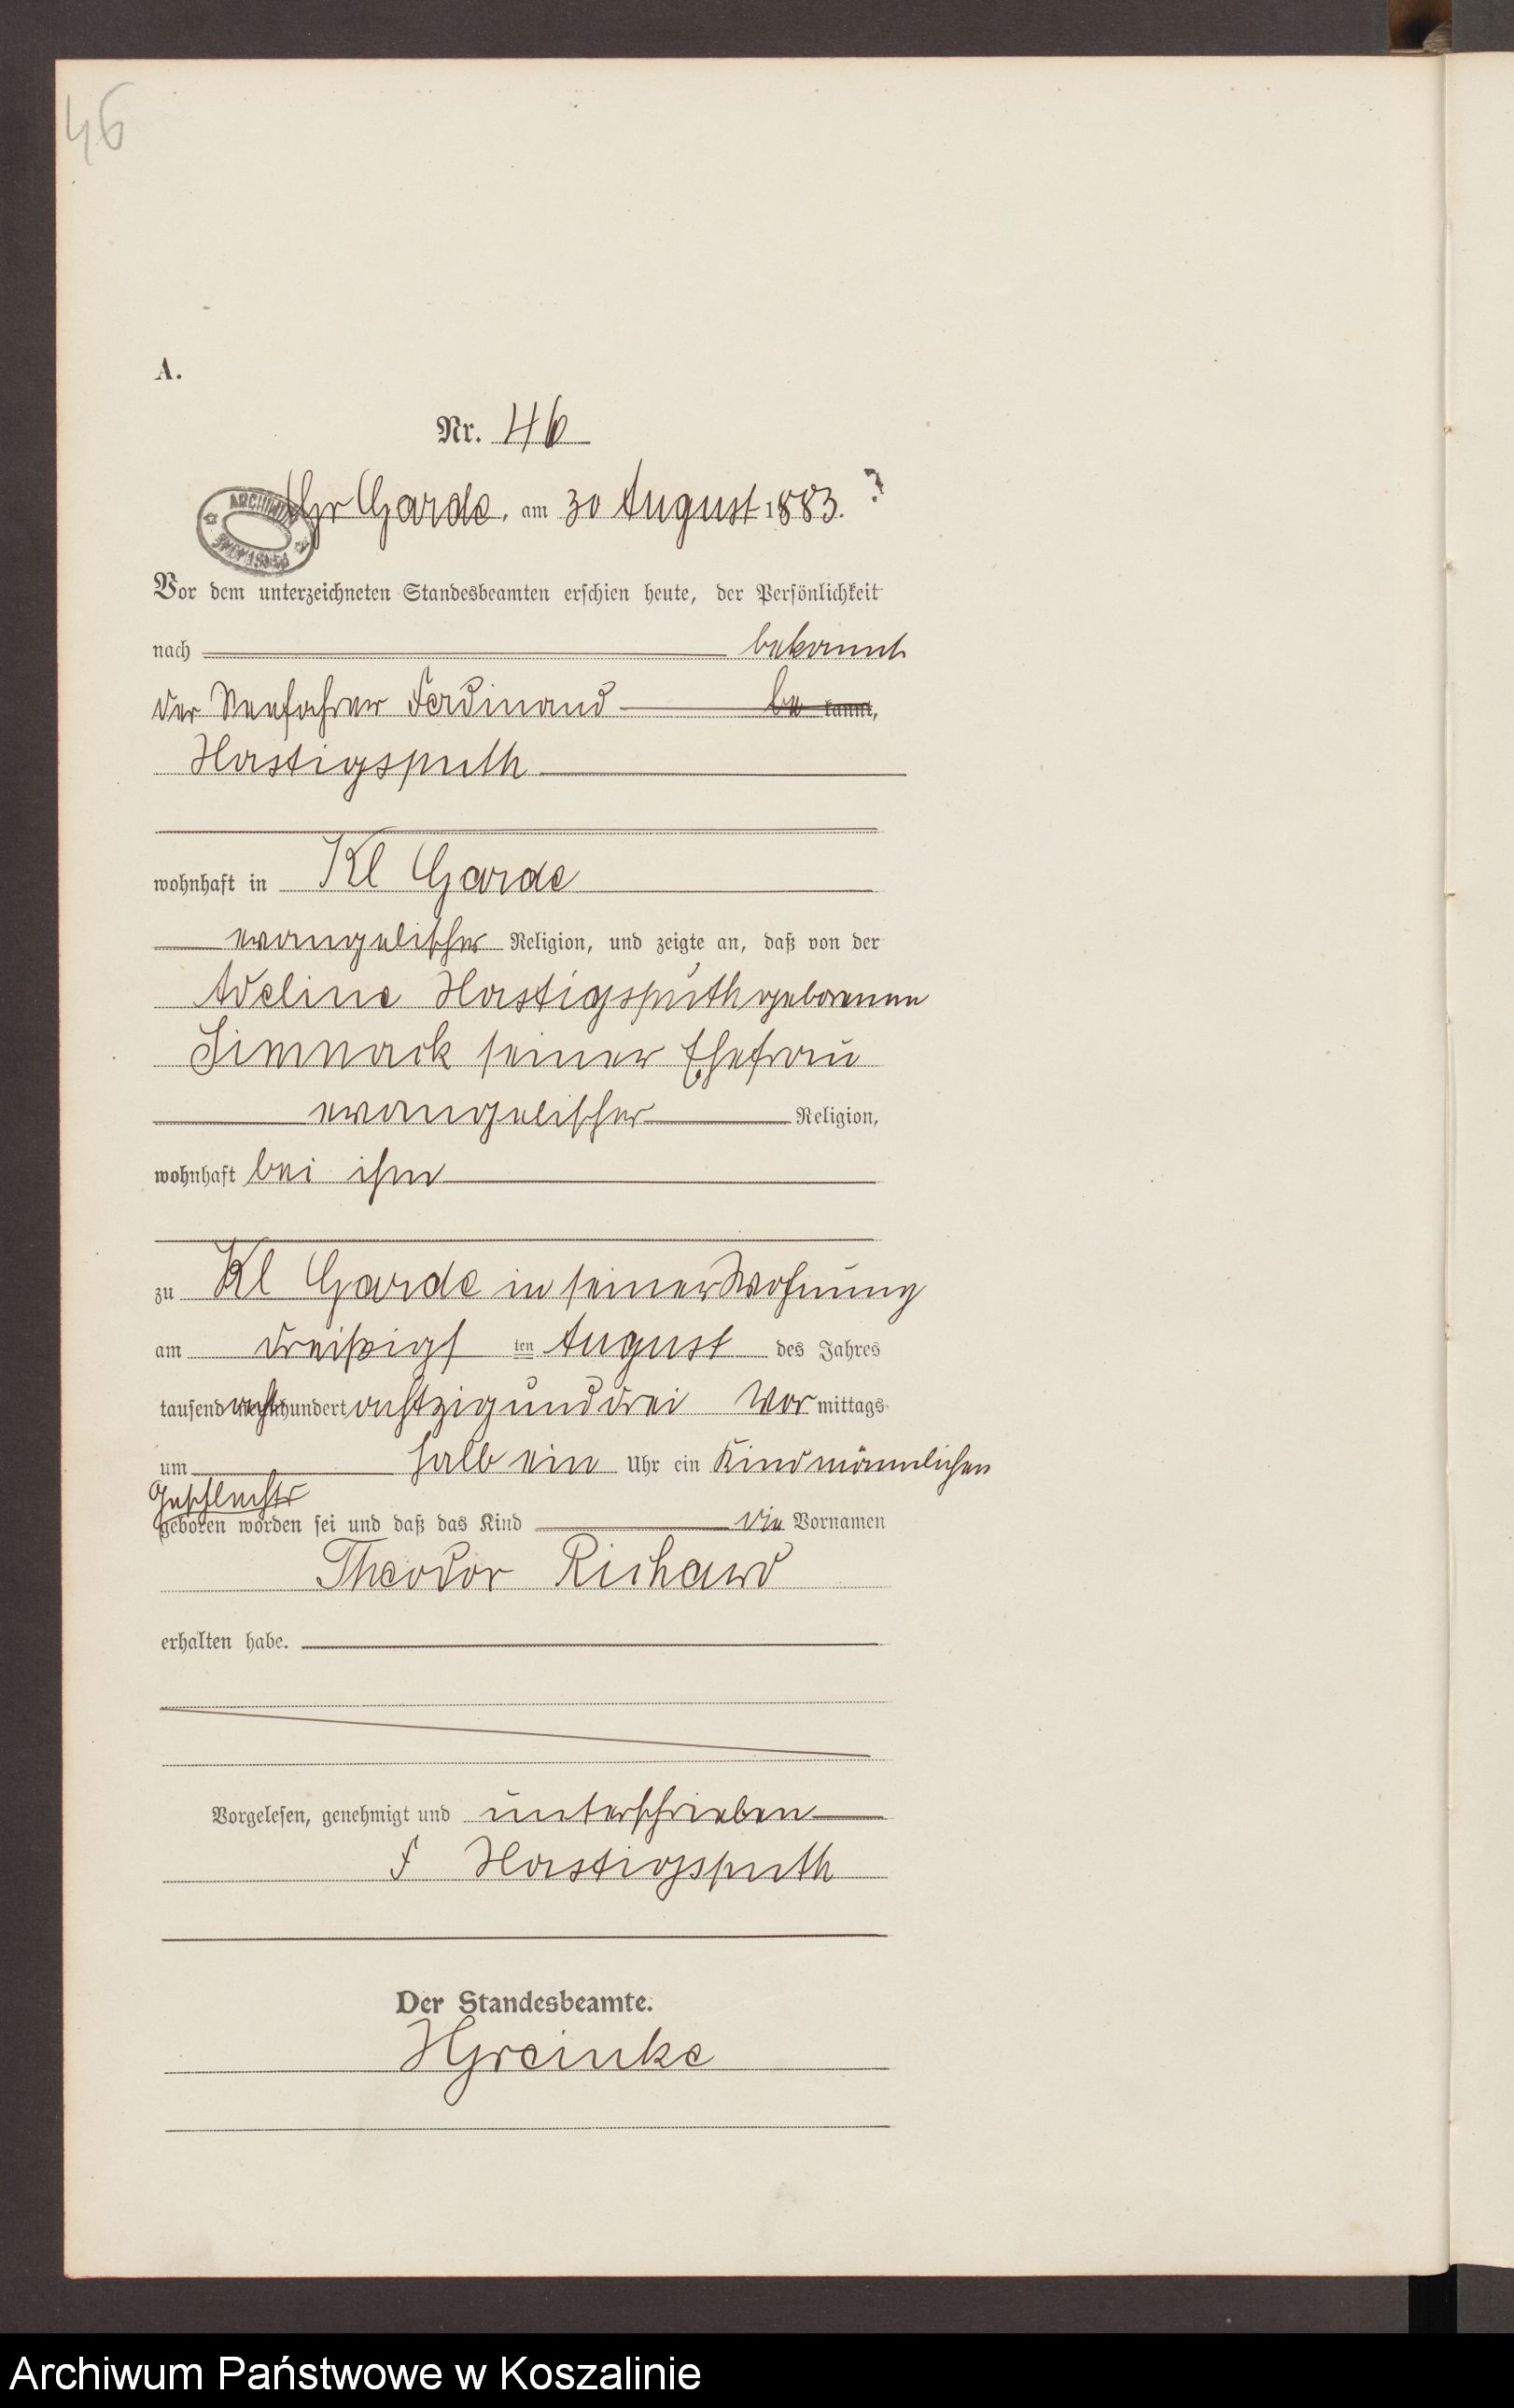 46
A.
Nr. 46
ARCHIWUM
Gr Garde, am 30 August 1883.
Vor dem unterzeichneten Standesbeamten erschien heute, der Persönlichkeit
nach bekannt
der Seefahrer Ferdinand be kannt,
Hastigsputh
wohnhaft in Kl Garde
evangelischer Religion, und zeigte an, daß von der
Adeline Hastigsputh geborenen
Simnack seiner Ehefrau
evangelischer Religion,
wohnhaft bei ihm
zu Kl Garde in seiner Wohnung
am dreißigs ten August des Jahres
tausend acht hundert achtzig und drei Vor mittags
um halb ein Uhr ein Kind männlichen
Geschlechts
geboren worden sei und daß das Kind die Vornamen
Theodor Richard
erhalten habe.
Vorgelesen, genehmigt und unterschrieben
F Hastigsputh
Der Standesbeamte.
HGreinke
Archiwum Państwowe w Koszalinie